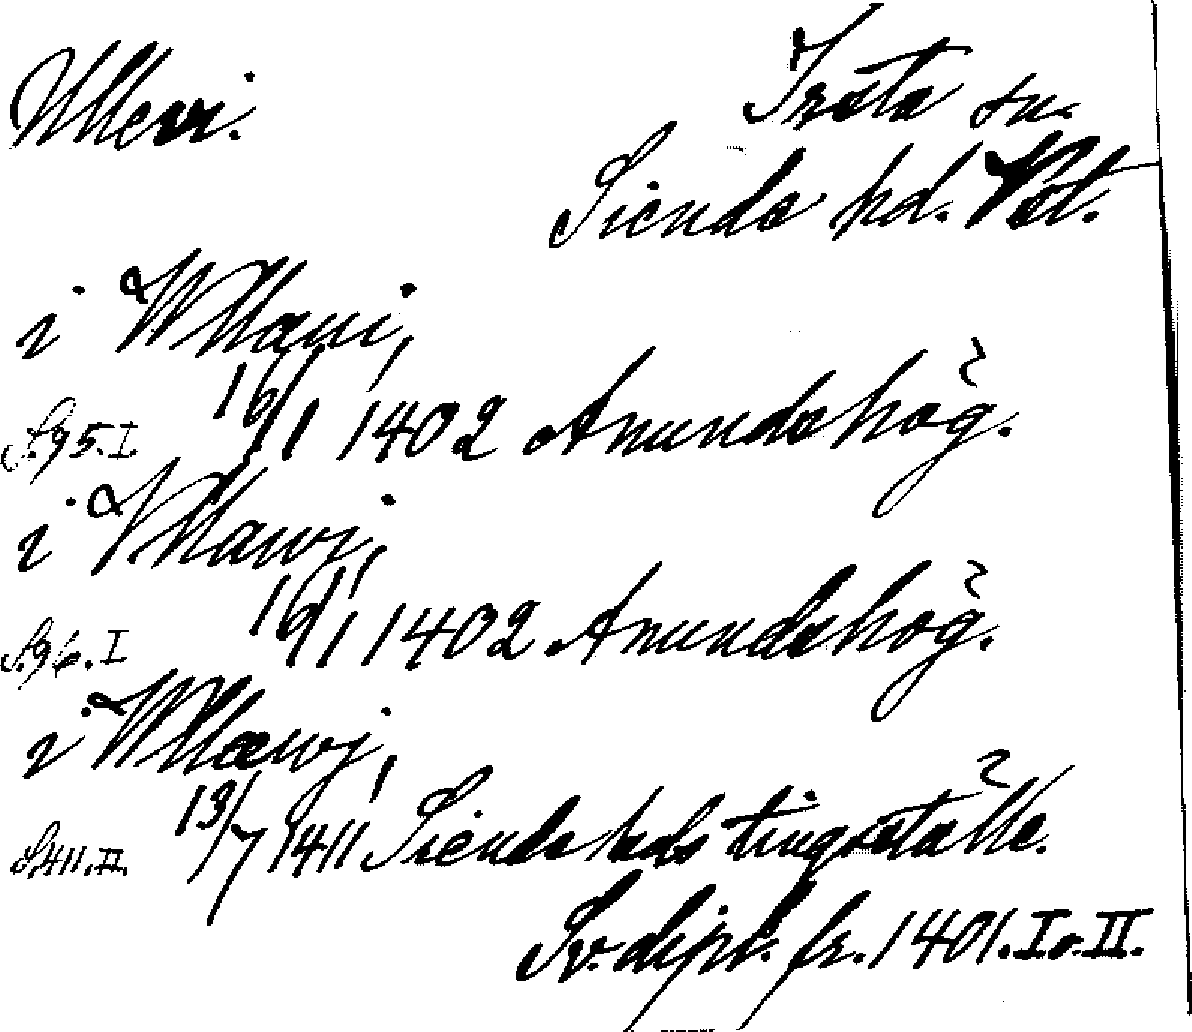 Ullevi.
Irsta sn.
Siende hd. Vst.
i Wllaui,
S. 95. I 16/11 1402 Anundshög.
i Vllawj,
S. 96. I 16/11 1402 Anundshög.
i Wllæwj,
S. 411. II. 13/7 1411 Siende hds tingställe.
Sv. dipl. fr. 1401. I o. II.